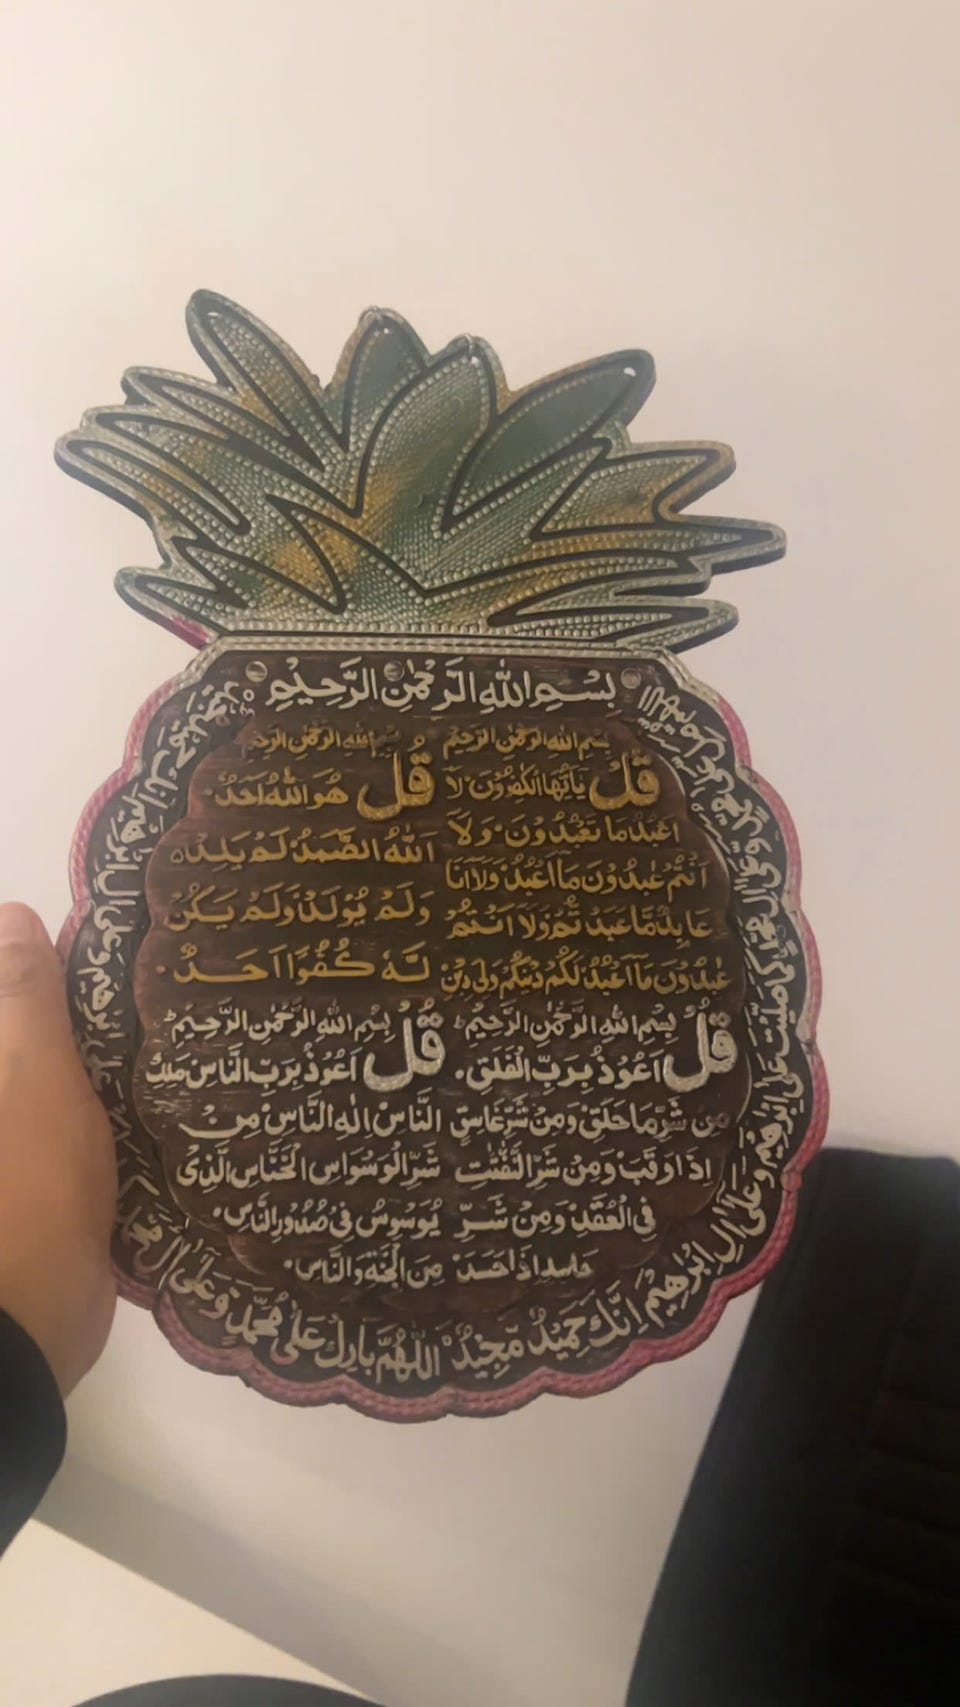 بِسْمِ اللهِ الرَّحْمٰنِ الرَّحِيْمِ
بِسْمِ اللهِ الرَّحْمٰنِ الرَّحِيْمِ
قُلْ يٰٓاَيُّهَا الْكٰفِرُوْنَ۔ لَآ
اَعْبُدُ مَا تَعْبُدُوْنَ۔ وَلَآ
اَنْتُمْ عٰبِدُوْنَ مَآ اَعْبُدُ وَلَآ اَنَا
عَابِدٌ مَّا عَبَدْتُّمْ وَلَآ اَنْتُمْ
عٰبِدُوْنَ مَآ اَعْبُدُ لَكُمْ دِيْنُكُمْ وَلِيَ دِيْنِ
بِسْمِ اللهِ الرَّحْمٰنِ الرَّحِيْمِ
قُلْ هُوَ اللّٰهُ اَحَدٌ۔
اَللّٰهُ الصَّمَدُ لَمْ يَلِدْ
وَلَمْ يُوْلَدْ وَلَمْ يَكُنْ
لَّهٗ كُفُوًا اَحَدٌ۔
بِسْمِ اللهِ الرَّحْمٰنِ الرَّحِيْمِ
قُلْ اَعُوْذُ بِرَبِّ الْفَلَقِ۔
مِنْ شَرِّ مَا خَلَقَ وَمِنْ شَرِّ غَاسِقٍ
اِذَا وَقَبَ وَمِنْ شَرِّ النَّفّٰثٰتِ
فِي الْعُقَدِ وَمِنْ شَرِّ
حَاسِدٍ اِذَا حَسَدَ
بِسْمِ اللهِ الرَّحْمٰنِ الرَّحِيْمِ
قُلْ اَعُوْذُ بِرَبِّ النَّاسِ مَلِكِ
النَّاسِ اِلٰهِ النَّاسِ مِنْ
شَرِّ الْوَسْوَاسِ الْخَنَّاسِ الَّذِيْ
يُوَسْوِسُ فِيْ صُدُوْرِ النَّاسِ۔
مِنَ الْجِنَّةِ وَالنَّاسِ۔
اَللّٰهُمَّ صَلِّ عَلٰى مُحَمَّدٍ وَّعَلٰٓى اٰلِ مُحَمَّدٍ كَمَا صَلَّيْتَ عَلٰٓى اِبْرٰهِيْمَ وَعَلٰٓى اٰلِ اِبْرٰهِيْمَ اِنَّكَ حَمِيْدٌ مَّجِيْدٌ اَللّٰهُمَّ بَارِكْ عَلٰى مُحَمَّدٍ وَّعَلٰٓى اٰلِ مُحَمَّدٍ